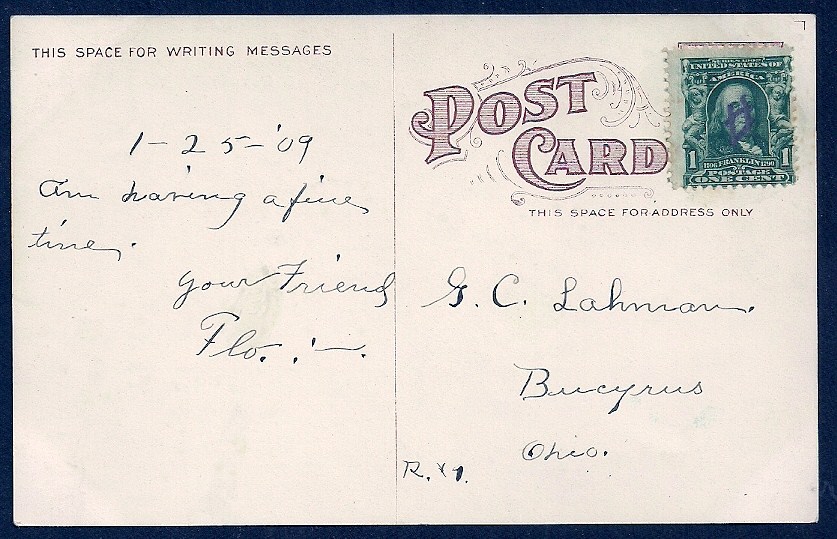 THIS SPACE FOR WRITING MESSAGES
1-25-'09
Am having a fine
time.
Your Friend
Flo.
POST
CARD
SERIES 1902
UNITED STATES OF
AMERICA
1 1
1706 FRANKLIN 1790
POSTAGE
ONE CENT
THIS SPACE FOR ADDRESS ONLY
G. C. Lahman.
Bucyrus
Ohio.